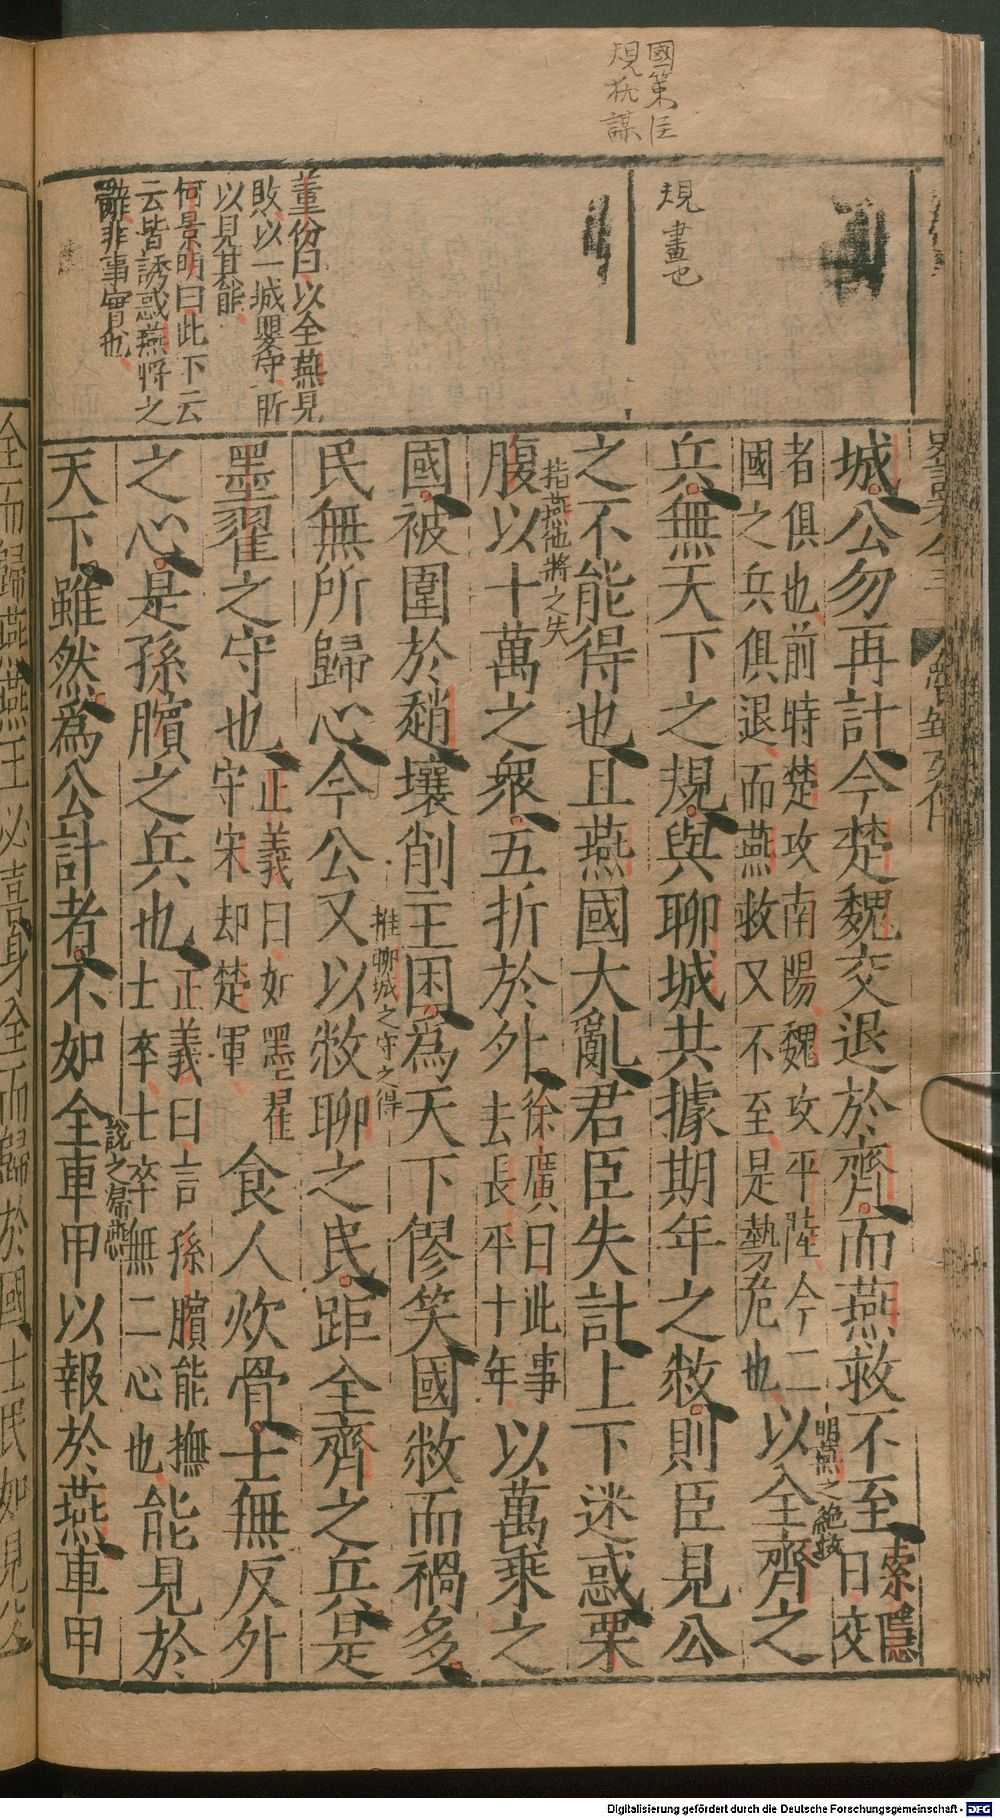 國策注
規猶謀
規畫也
董份曰以全燕見
敗以一城嬰守所
以見其能
何景明曰此下云
云皆誘惑燕將之
辭非事實也
城公勿再計今楚魏交退於齊而燕救不至索隱曰交
者俱也前時楚攻南陽魏攻平陸今二
國之兵俱退而燕救又不至是勢危也以全齊之
明燕之絶救
兵無天下之規與聊城共據期年之敝則臣見公
之不能得也且燕國大亂君臣失計上下迷惑栗
指燕他將之失
腹以十萬之衆五折於外徐廣曰此事去長平十年以萬乘之
國被圍於趙壤削主困為天下僇笑國敝而禍多
推聊城之守之得
民無所歸心今公又以敝聊之民距全齊之兵是
墨翟之守也正義曰如墨翟守宋却楚軍食人炊骨士無反外
之心是孫臏之兵也正義曰言孫臏能撫士卒士卒無二心也能見於
說之歸燕
天下雖然為公計者不如全車甲以報於燕車甲
全而歸燕燕王必喜身全而歸於國士民如見父
Digitalisierung gefördert durch die Deutsche Forschungsgemeinschaft - DFG